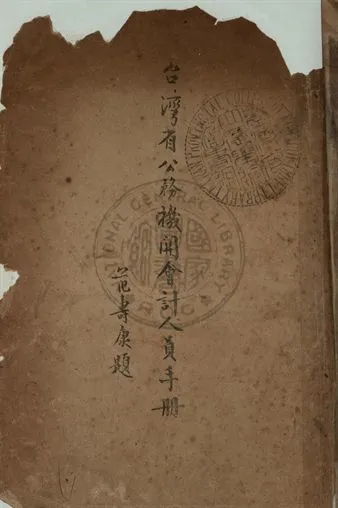 台灣省公務機關會計人員手冊
范壽康題
NATIONAL CENTRAL LIBRARY
國家